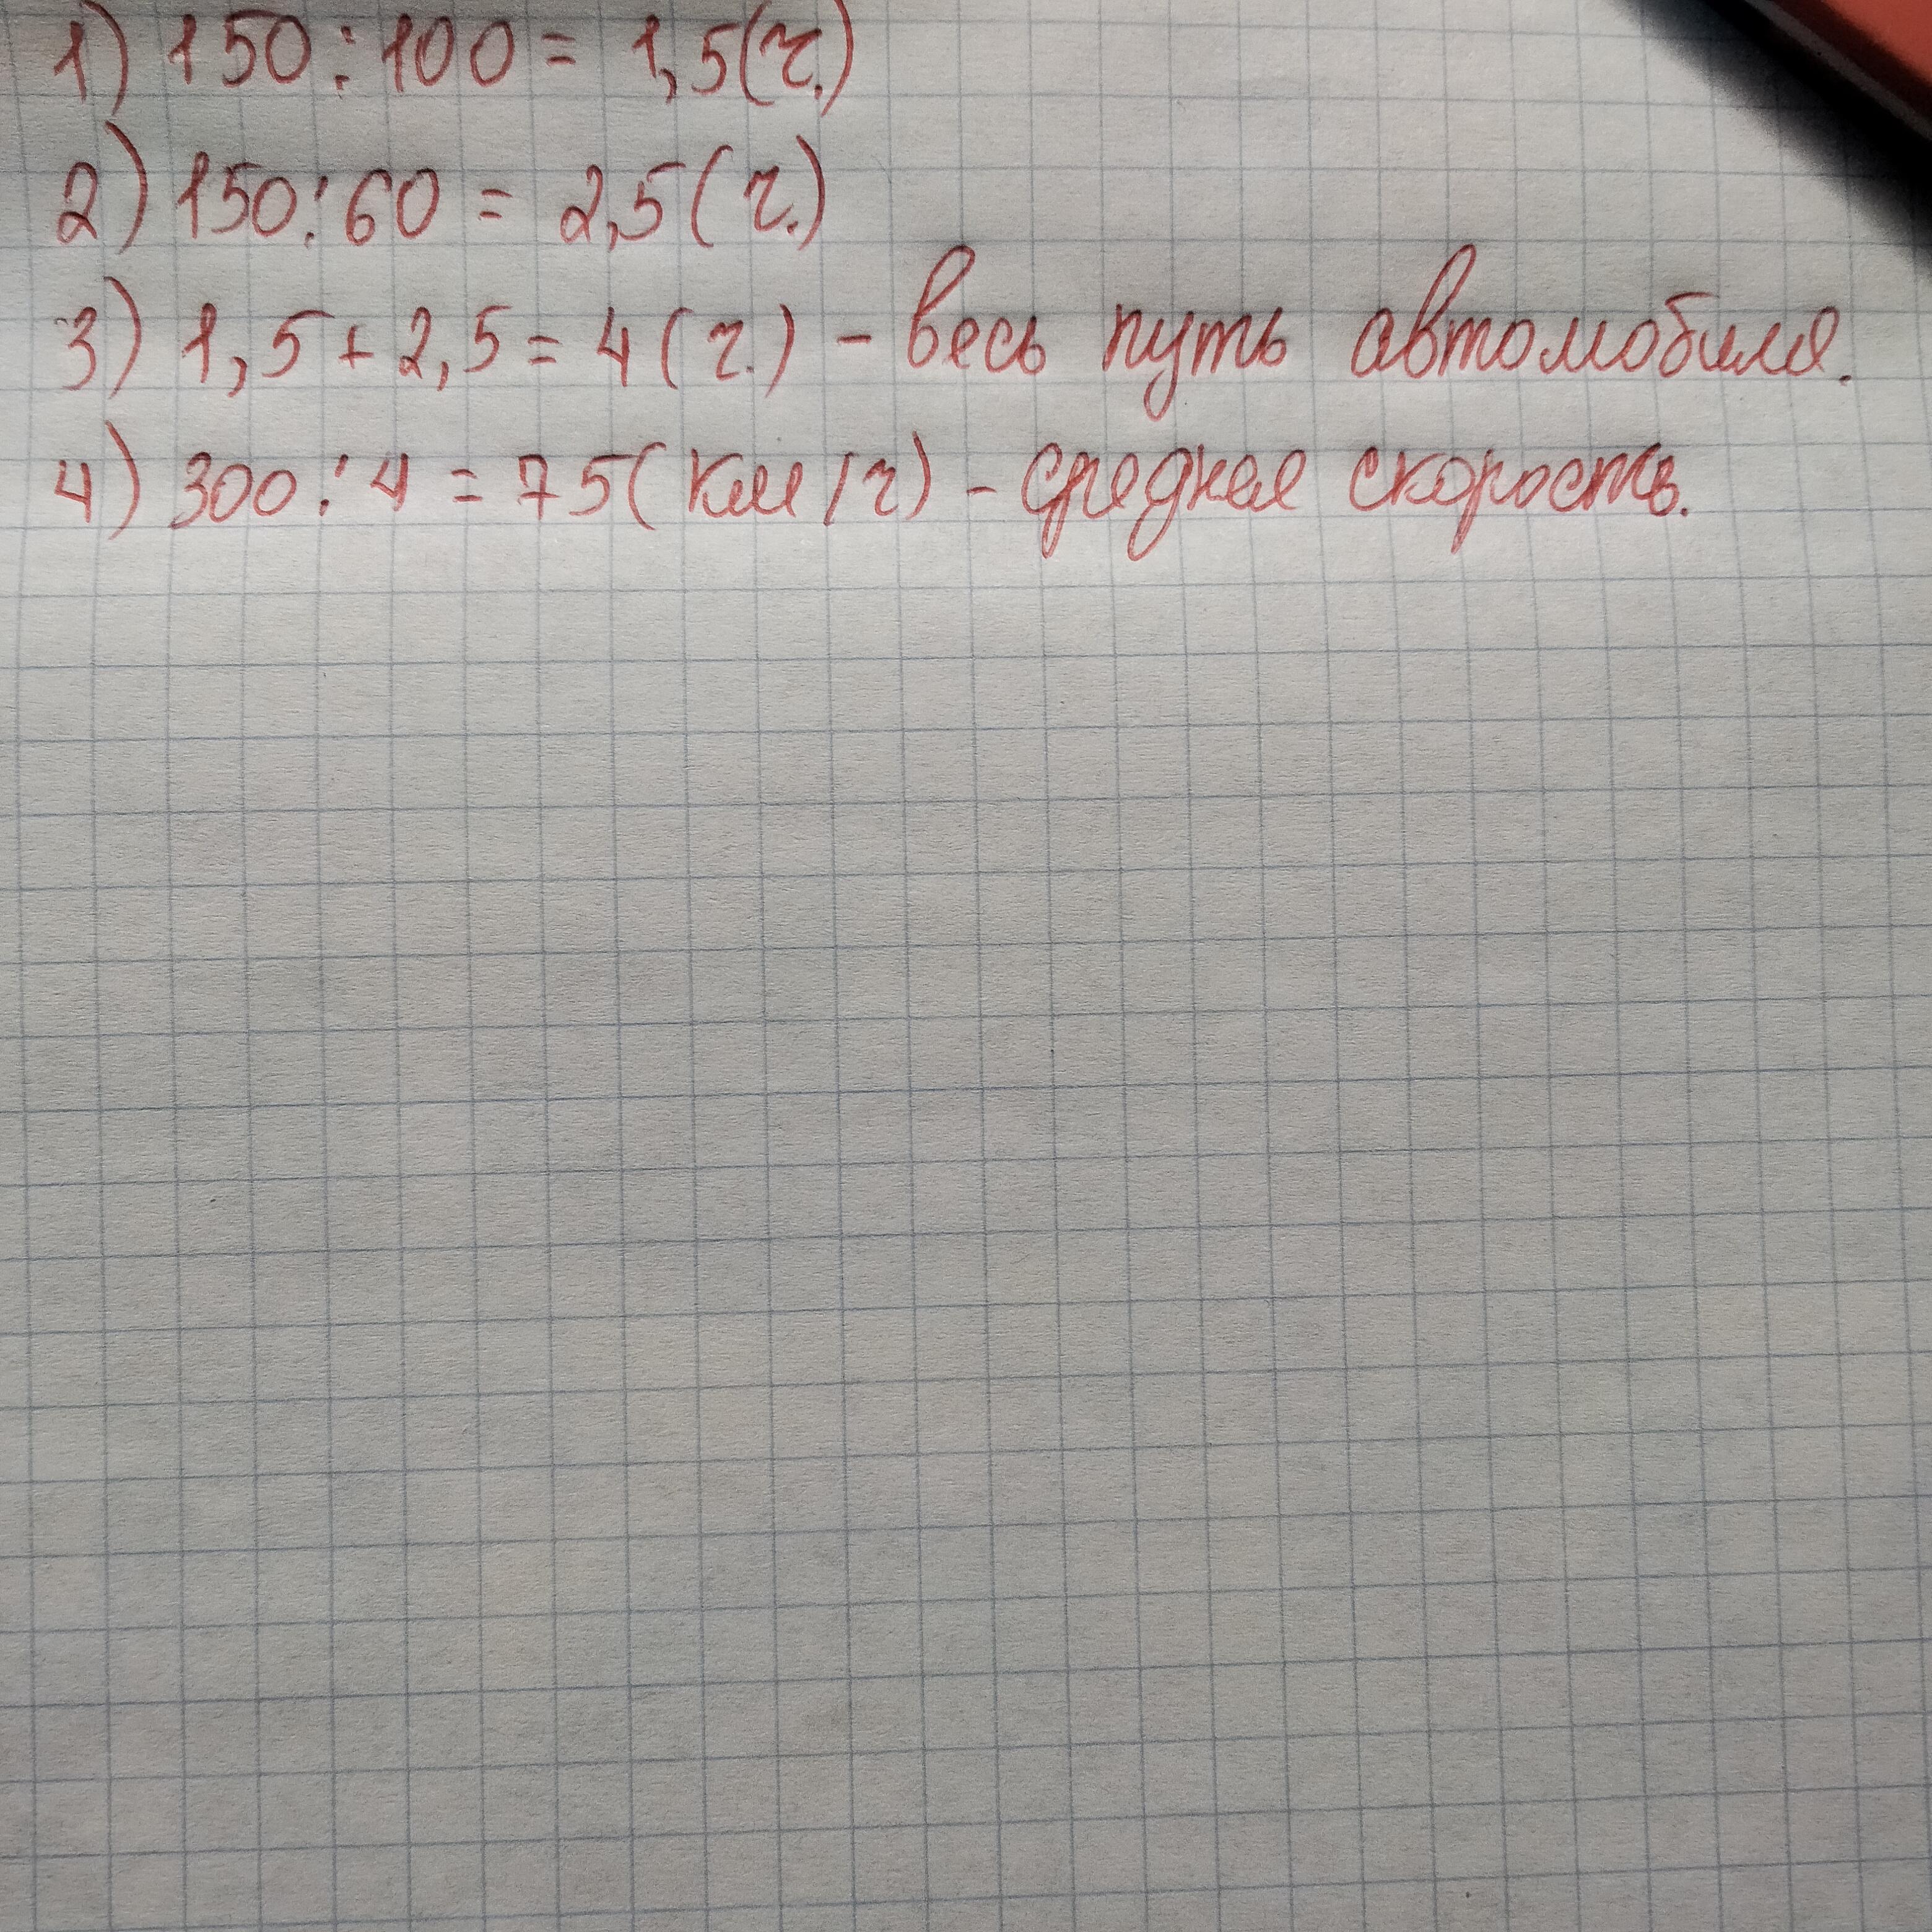 1) 150 : 100 = 1,5 (ч.)
2) 150 : 60 = 2,5 (ч.)
3) 1,5 + 2,5 = 4 (ч.) - весь путь автомобиля.
4) 300 : 4 = 75 (км/ч) - средняя скорость.